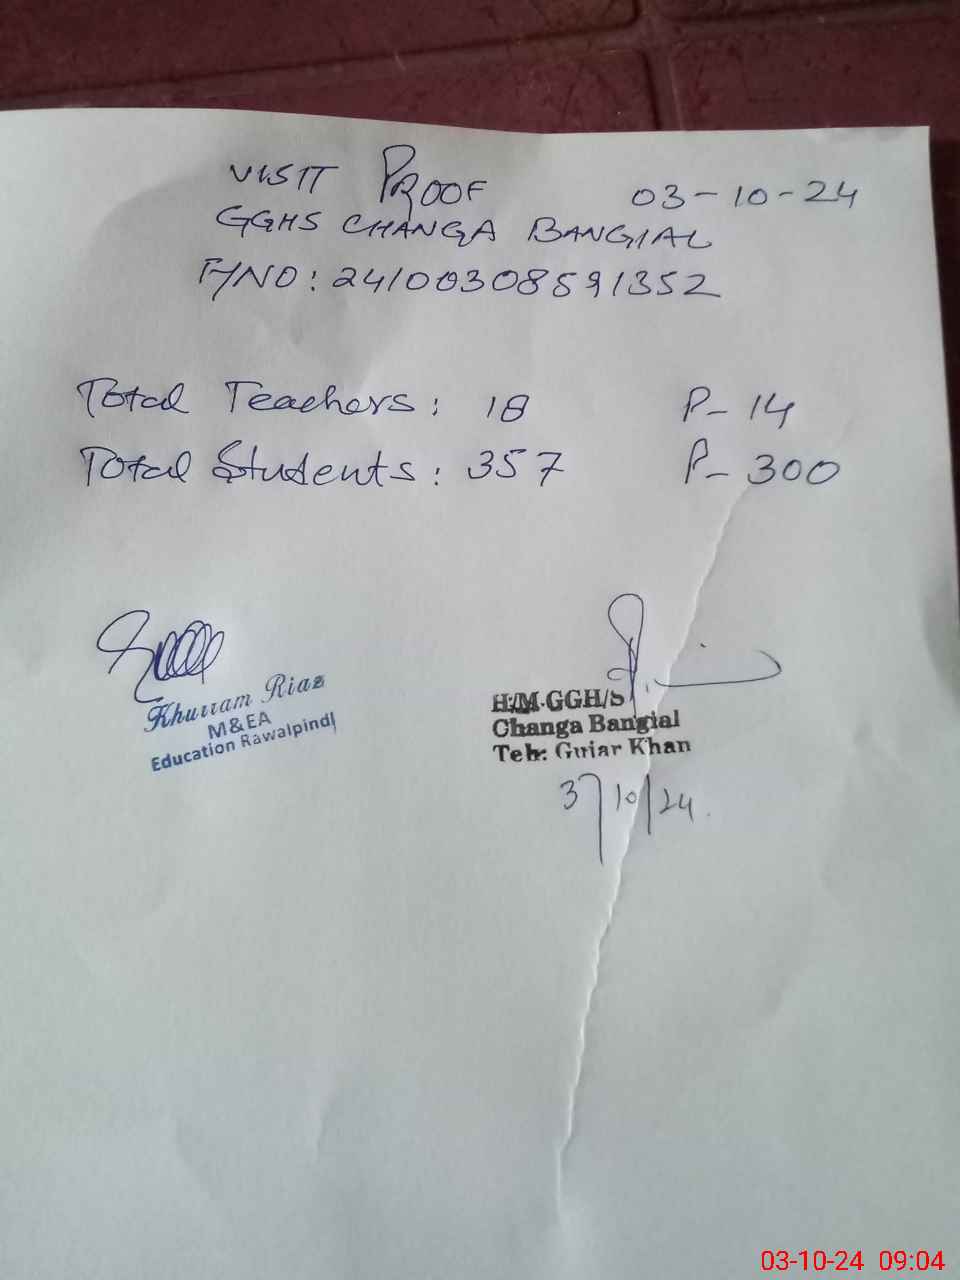 VISIT PROOF 03-10-24
GGHS CHANGA BANGIAL
P/NO: 24100308591352
Total Teachers: 18 P- 14
Total Students: 357 P- 300
Khurram Riaz
M&EA
Education Rawalpindi
H/M.GGH/S
Changa Bangial
Teh: Gujar Khan
3/10/24.
03-10-24 09:04